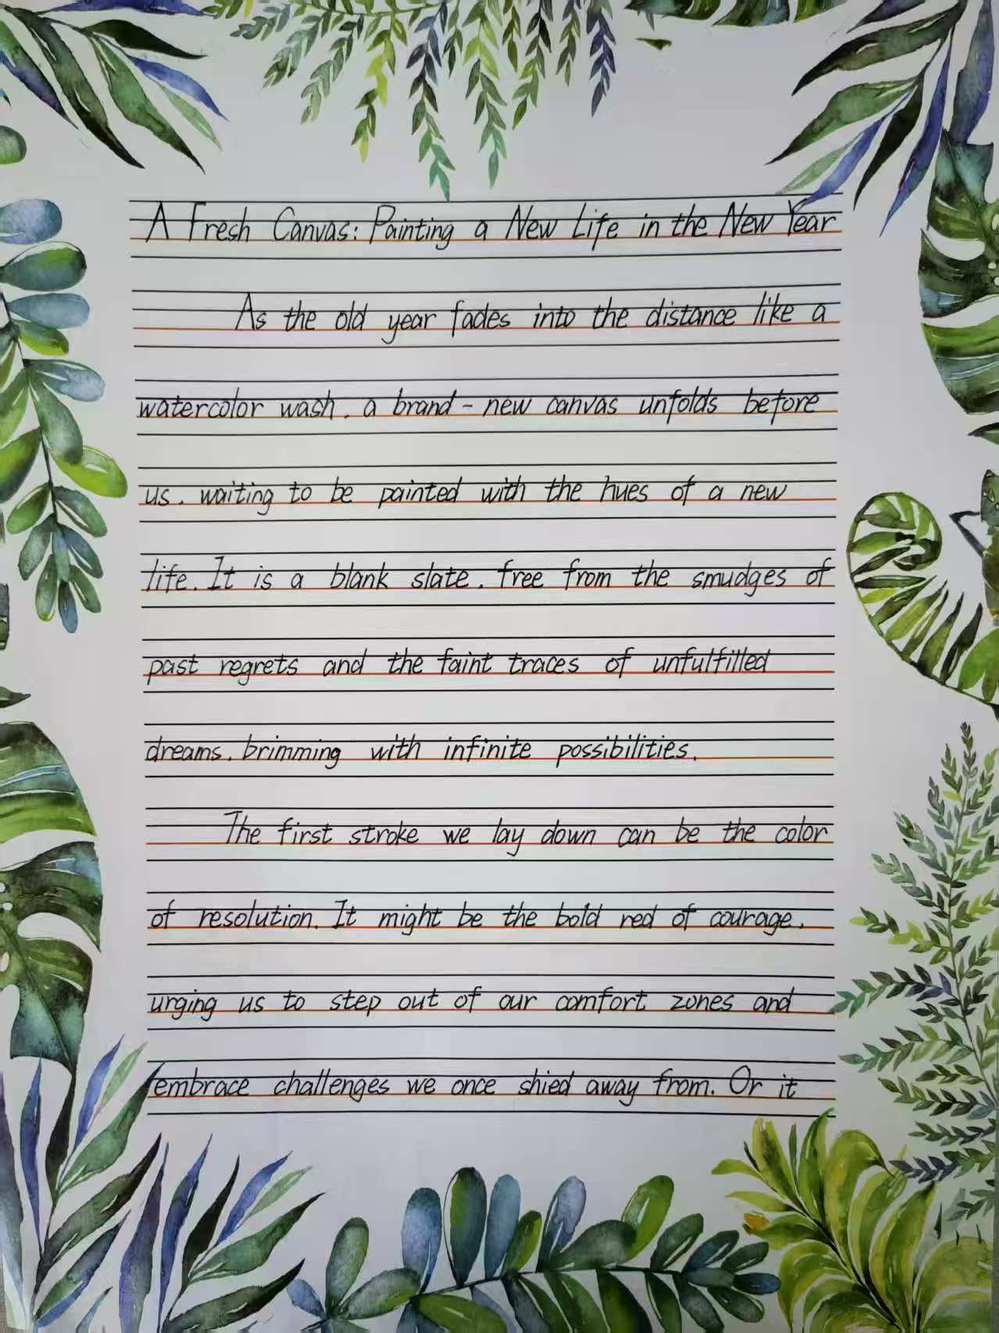 A Fresh Canvas: Painting a New Life in the New Year
As the old year fades into the distance like a
watercolor wash, a brand-new canvas unfolds before
us, waiting to be painted with the hues of a new
life. It is a blank slate, free from the smudges of
past regrets and the faint traces of unfulfilled
dreams, brimming with infinite possibilities.
The first stroke we lay down can be the color
of resolution. It might be the bold red of courage,
urging us to step out of our comfort zones and
embrace challenges we once shied away from. Or it